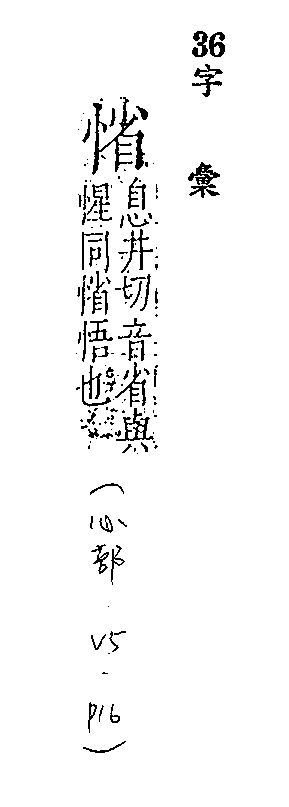 36
字彙
㥠息井切音省與
惺同㥠悟也
(心部.V5.P16)